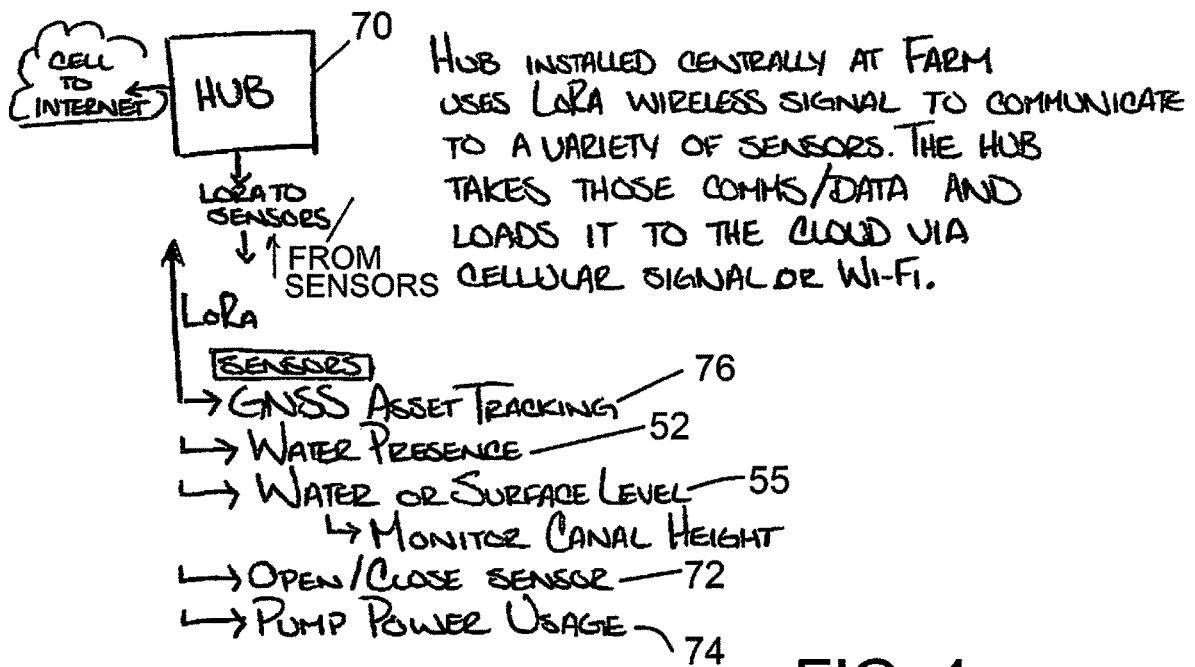 CELL
TO
INTERNET
HUB
70
HUB INSTALLED CENTRALLY AT FARM
USES LORA WIRELESS SIGNAL TO COMMUNICATE
TO A VARIETY OF SENSORS. THE HUB
TAKES THOSE COMMS/DATA AND
LOADS IT TO THE CLOUD VIA
CELLULAR SIGNAL OR WI-FI.
LORA TO
SENSORS/
FROM
SENSORS
LORA
SENSORS
GNSS ASSET TRACKING 76
WATER PRESENCE 52
WATER OR SURFACE LEVEL 55
MONITOR CANAL HEIGHT
OPEN/CLOSE SENSOR 72
PUMP POWER USAGE 74